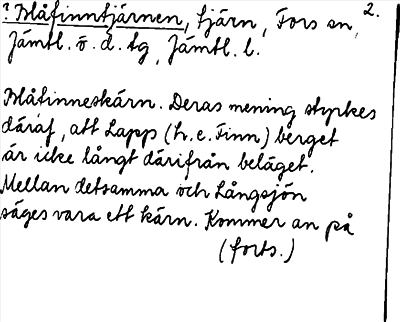 ? Blåfinntjärnen, tjärn, Fors sn, 2.
Jämtl. ö. d. tg, Jämtl. l.
Blåfinneskärn. Deras mening styrkes
däraf, att Lapps (h. e. Finn) berget
är icke långt därifrån beläget.
Mellan detsamma och Långsjön
säges vara ett kärn. Kommer an på
(forts.)